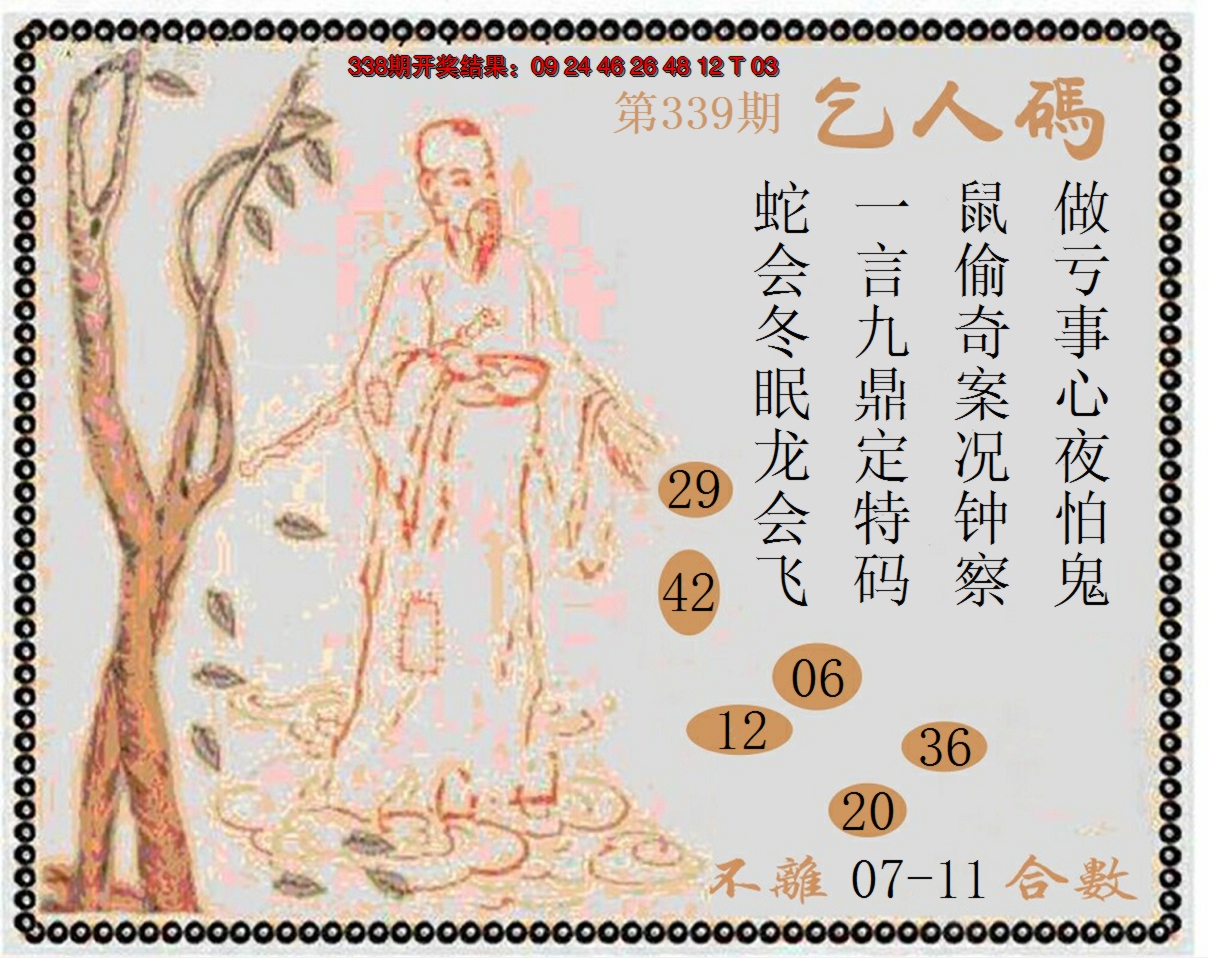 338期开奖结果：09 24 46 26 48 12 T 03
第339期 乞人碼
做亏事心夜怕鬼
鼠偷奇案况钟察
一言九鼎定特码
蛇会冬眠龙会飞
29
42
06
12
36
20
不離 07-11 合數